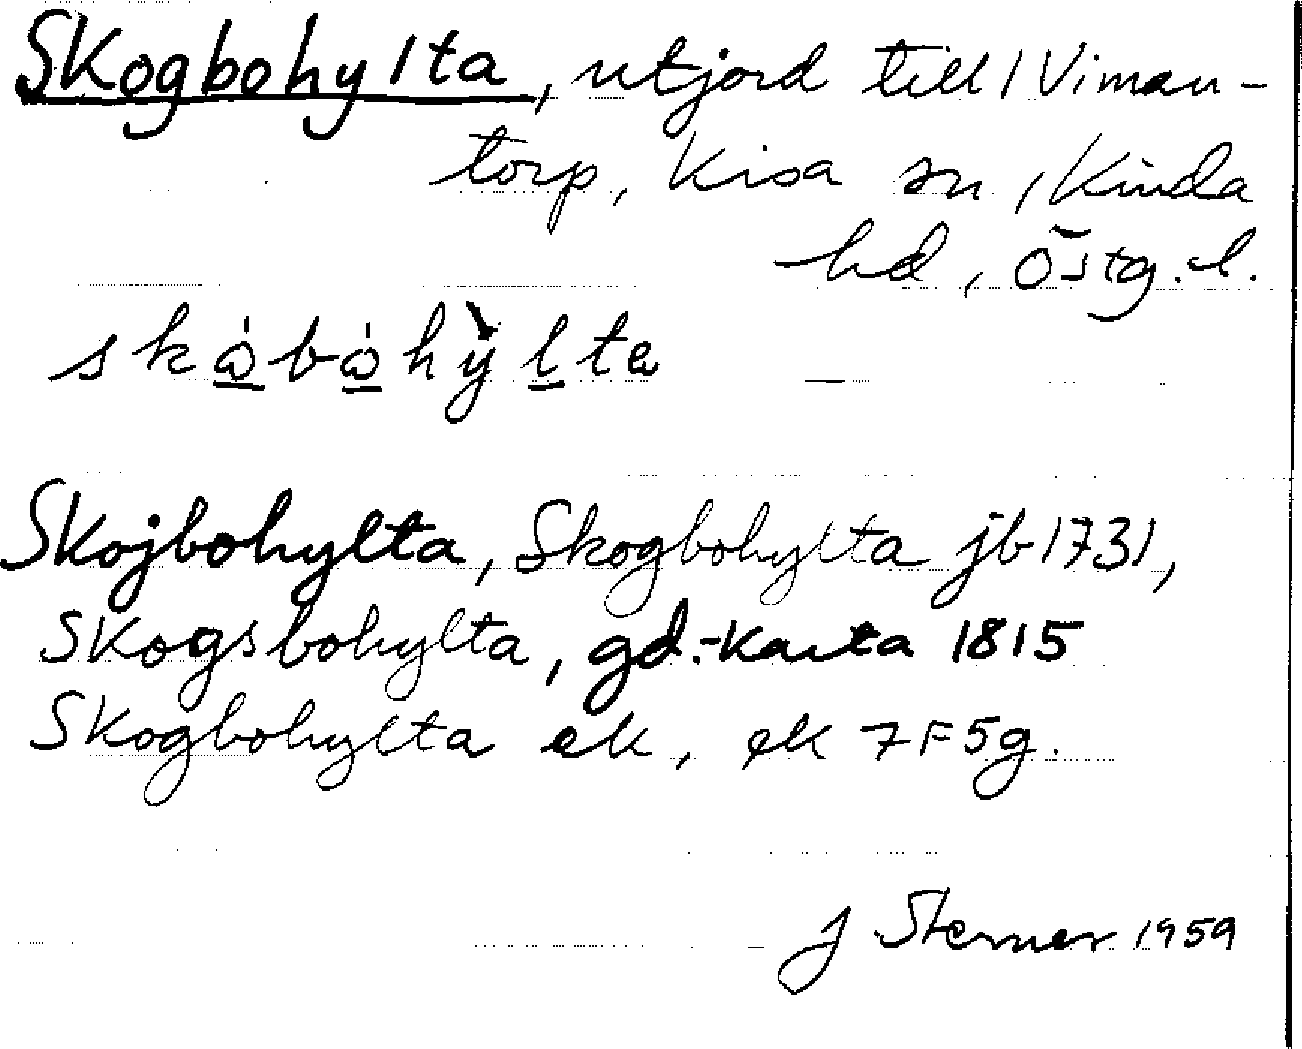 Skogbohylta, utjord till 1 Viman-
torp, Kisa sn, Kinda
hd, Östg. l.
skå̀bå̀hỳlta
Skojbohylta, Skogbohylta jb 1731,
Skogsbohylta, gd.-karta 1815
Skogbohylta ek, ek 7F5g.
J Sterner 1959